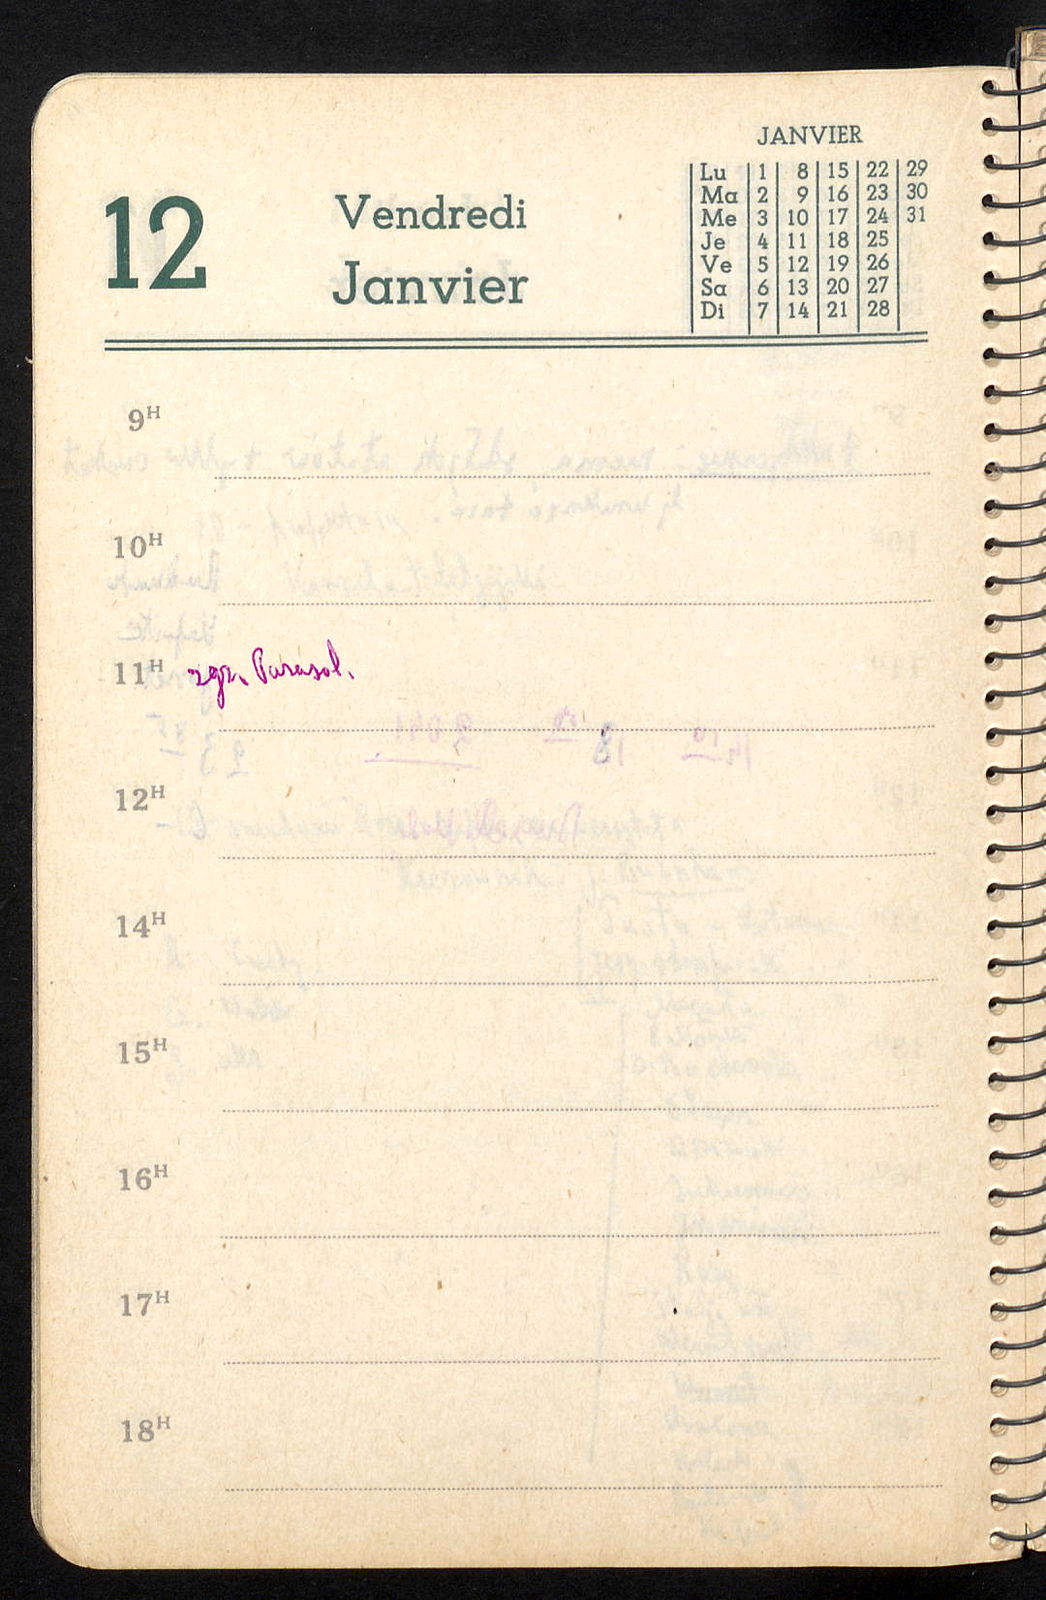 12
Vendredi
Janvier
JANVIER
Lu 1 8 15 22 29
Ma 2 9 16 23 30
Me 3 10 17 24 31
Je 4 11 18 25
Ve 5 12 19 26
Sa 6 13 20 27
Di 7 14 21 28
9H
10H
11H zgr. Parasol.
12H
14H
15H
16H
17H
18H